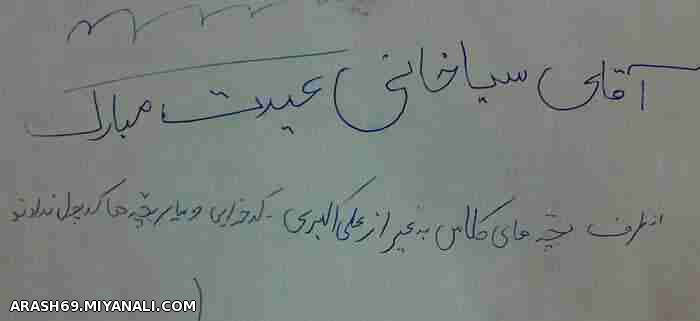 آقای سیاخانی عیدت مبارک
از طرف بچه های کلاس به غیر از علی اکبری - کدخدایی و سایر بچه ها که پول ندادند
ARASH69.MIYANALI.COM